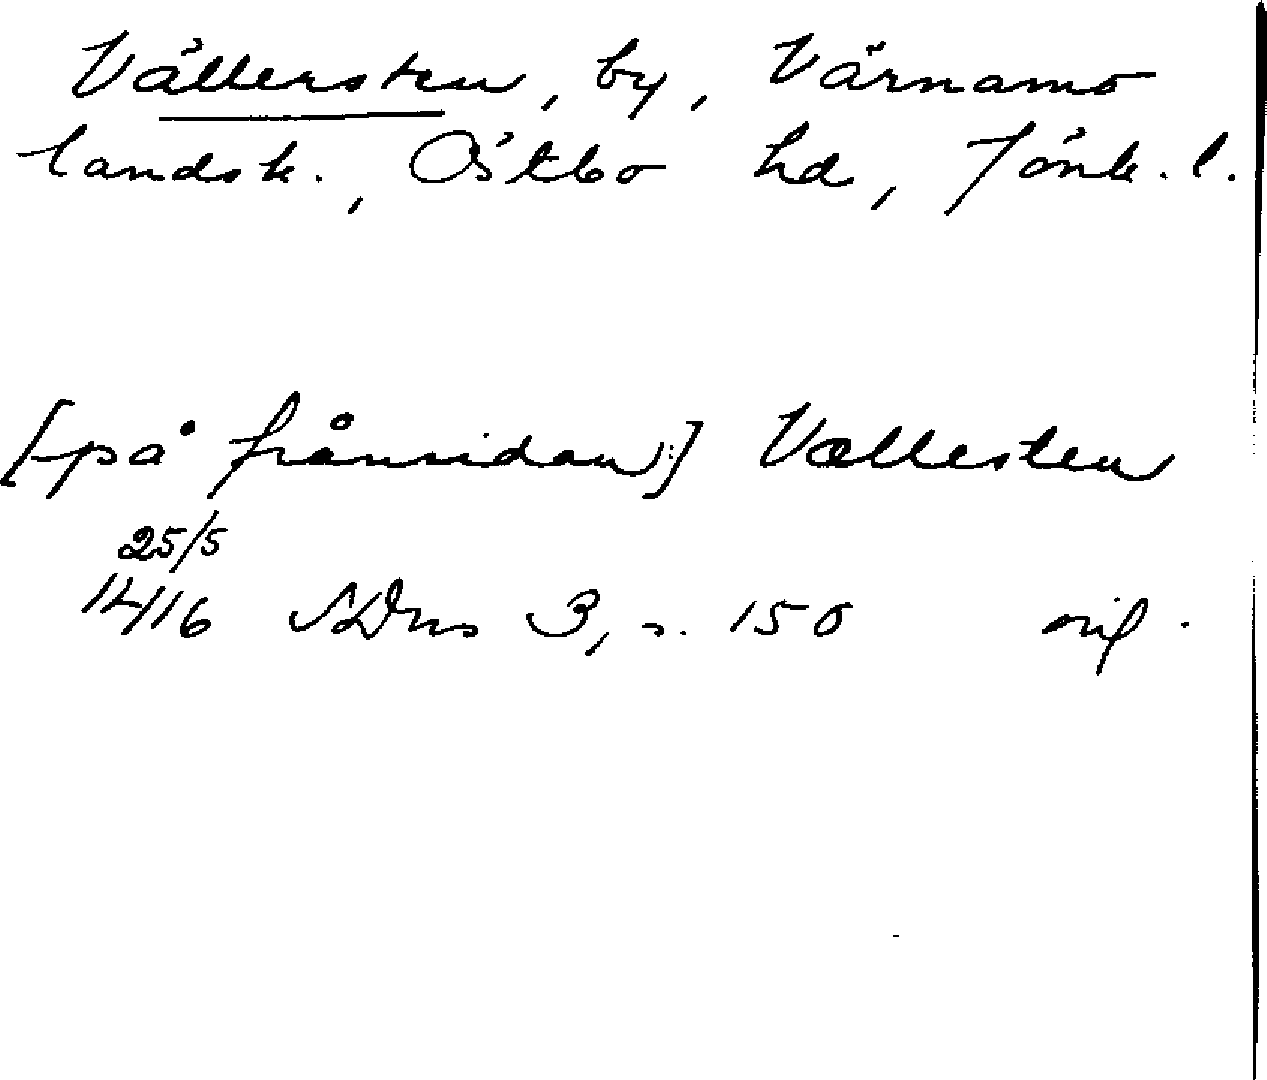 Vällersten, by, Värnamo
landsk., Östbo hd, Jönk. l.
[på frånsidan:] Vællesten
25/5
1416 SDns 3, s. 150 orig.